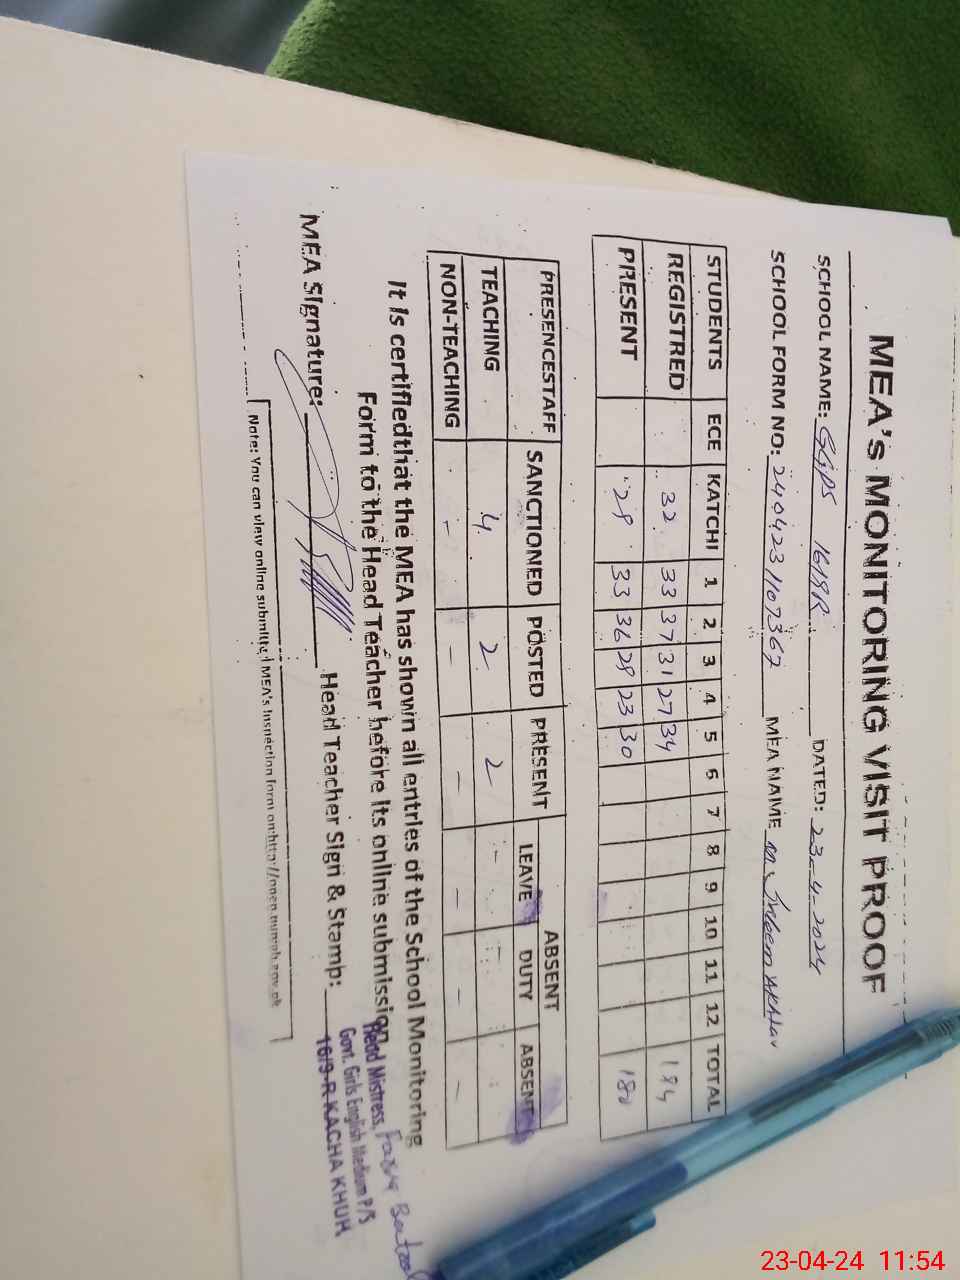 MEA's MONITORING VISIT PROOF
SCHOOL NAME: GGPS 1619R DATED: 23-4-2024
SCHOOL FORM NO: 240423 1107367 MEA NAME M.
STUDENTS ECE KATCHI 1 2 3 4 5 6 7 8 9 10 11 12 TOTAL
REGISTRED 32 33 37 31 27 34 194
PRESENT 28 33 36 28 23 30 180
PRESENCESTAFF SANCTIONED POSTED PRESENT ABSENT
LEAVE DUTY ABSENT
TEACHING 4 2 2 - -
NON-TEACHING - - - - - -
It is certifiedthat the MEA has shown all entries of the School Monitoring
Form to the Head Teacher before its online submission
MEA Signature: Head Teacher Sign & Stamp:
Head Mistress,
Govt. Girls English Medium P/S
16/9-R KACHA KHUH
Note: You can view online submitted MEA's Inspection form on:http://open.punjab.gov.pk
23-04-24 11:54